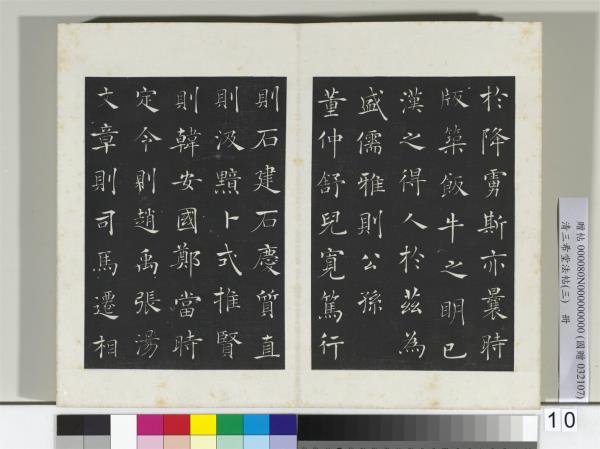 於降虜斯亦曩時
版築飯牛之明已
漢之得人於茲為
盛儒雅則公孫
董仲舒兒寬篤行
則石建石慶質直
則汲黯卜式推賢
則韓安國鄭當時
定令則趙禹張湯
文章則司馬遷相
贈帖 000080N000000000 (國贈 032107)
清三希堂法帖(三) 冊
10